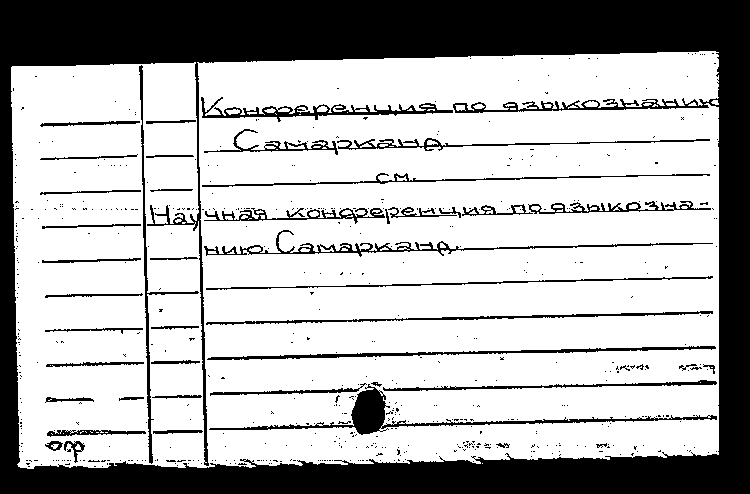 Конференция по языкознанию
Самарканд.
см.
Научная конференция по языкозна-
нию. Самарканд.